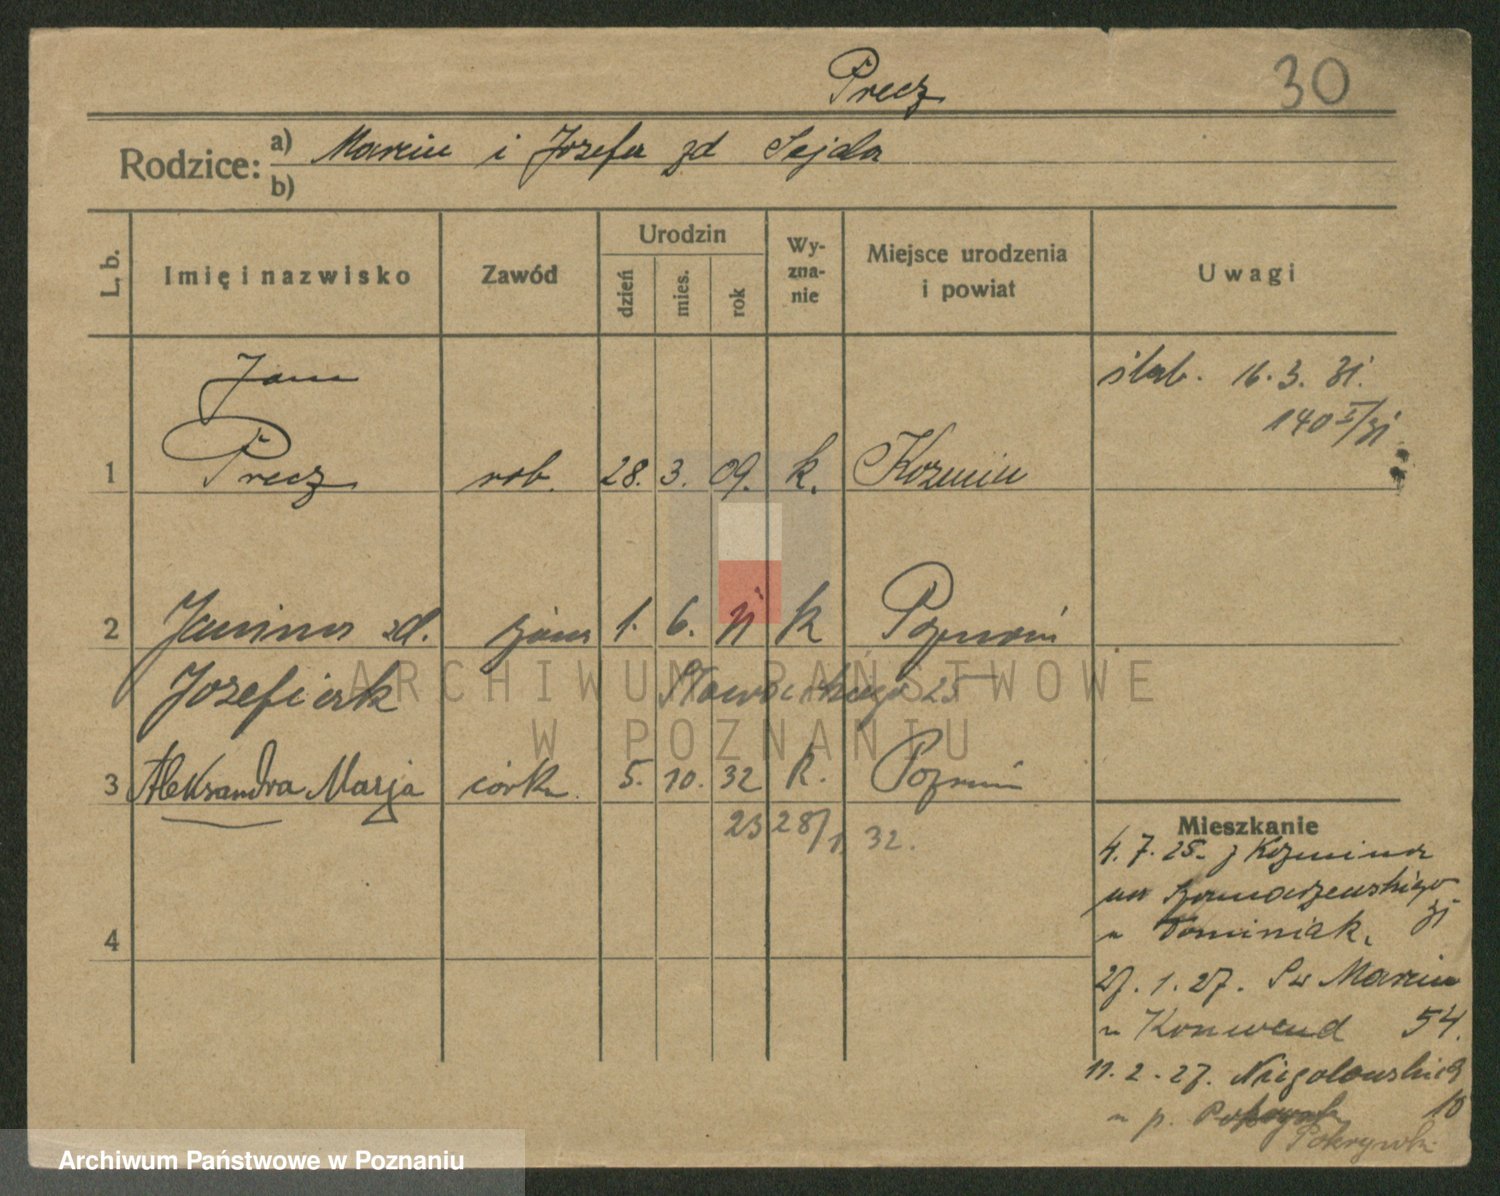 Precz
30
Rodzice: a) Marcin i Józefa zd Sejda
b)
L. b.
Imię i nazwisko
Zawód
Urodzin
dzień
mies.
rok
Wy-
zna-
nie
Miejsce urodzenia
i powiat
Uwagi
Jan
ślub. 16.3.31.
140 I/31
1 Precz rob. 28. 3. 09. k. Kozmin
2 Janina zd. żona 1. 6. 11 k Poznań
Józefiak Słowackiego 25
3 Aleksandra Marja córka 5. 10. 32 k. Poznań
23 28/1. 32.
Mieszkanie
4.7.25. z Kozmina
na Szamarzewskiego
31
u Dominiak.
4
27.1.27. Sw Marcin
u Konwend 54.
11.2.27. Niegolewskich
10
u p.
Pokrywka
ARCHIWUM PAŃSTWOWE
W POZNANIU
Archiwum Państwowe w Poznaniu